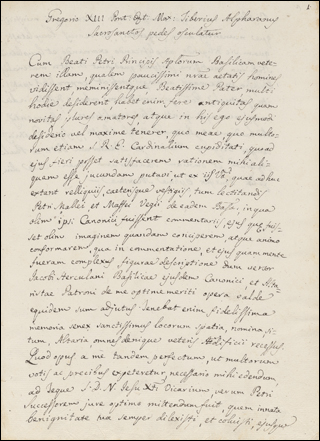 1
Gregorio XIII Pont: Opt: Max: Tiberius Alpharanus
Sacrosanctos pedes osculatur
Cum Beati Petri Principis Aplorum Basilicam vete-
rem illam, qualem paucissimi nrae aetatis homines
vidissent, meminissentque Beatissime Pater multi
hodie desiderent, habet enim, fere antiquitas, quam
novitas plures amatores, atque in his ego ejusmodi
desiderio vel maxime tenerer, quo meae, quo multo-
rum etiam S. R. E. Cardinalium cupiditati, quoad
ejus fieri posset satisfacerem rationem mihi ali-
quam esse ineundam putavi ut ex iis, quae adhuc
extant reliquiis, caeterisque vestigiis tum lectitandis
Petri Mallei et Maffei Vegii de eadem Basca, in qua
olim ipsi Canonici fuissent commentariis, ejus quae fuis-
set olim imaginem quandam conciperem, atque animo
conformarem, qua in commentatione, et ejus quam mente
fueram complexus figurae descriptione dum versor
Jacobi Herculani Basilicae ejusdem Canonici et Ita
nrtae Patroni de me optime meriti opera valde
equidem sum adjutus tenebat enim, fidelissima
memoria senex sanctissimus locorum spatia, nomina, si-
tum, Altaria omnes denique veteris Aedificii recessus
Quod opus a me tandem perfectum, ut multorum
votis ac precibus expeteretur, necessario mihi edendum,
ad Teque S. D. N. Jesu Xti Vicarium, verum Petri
successorem jure optimo mittendum fuit, quem innata
benignitate tua semper dilexisti, et coluisti, ejusque